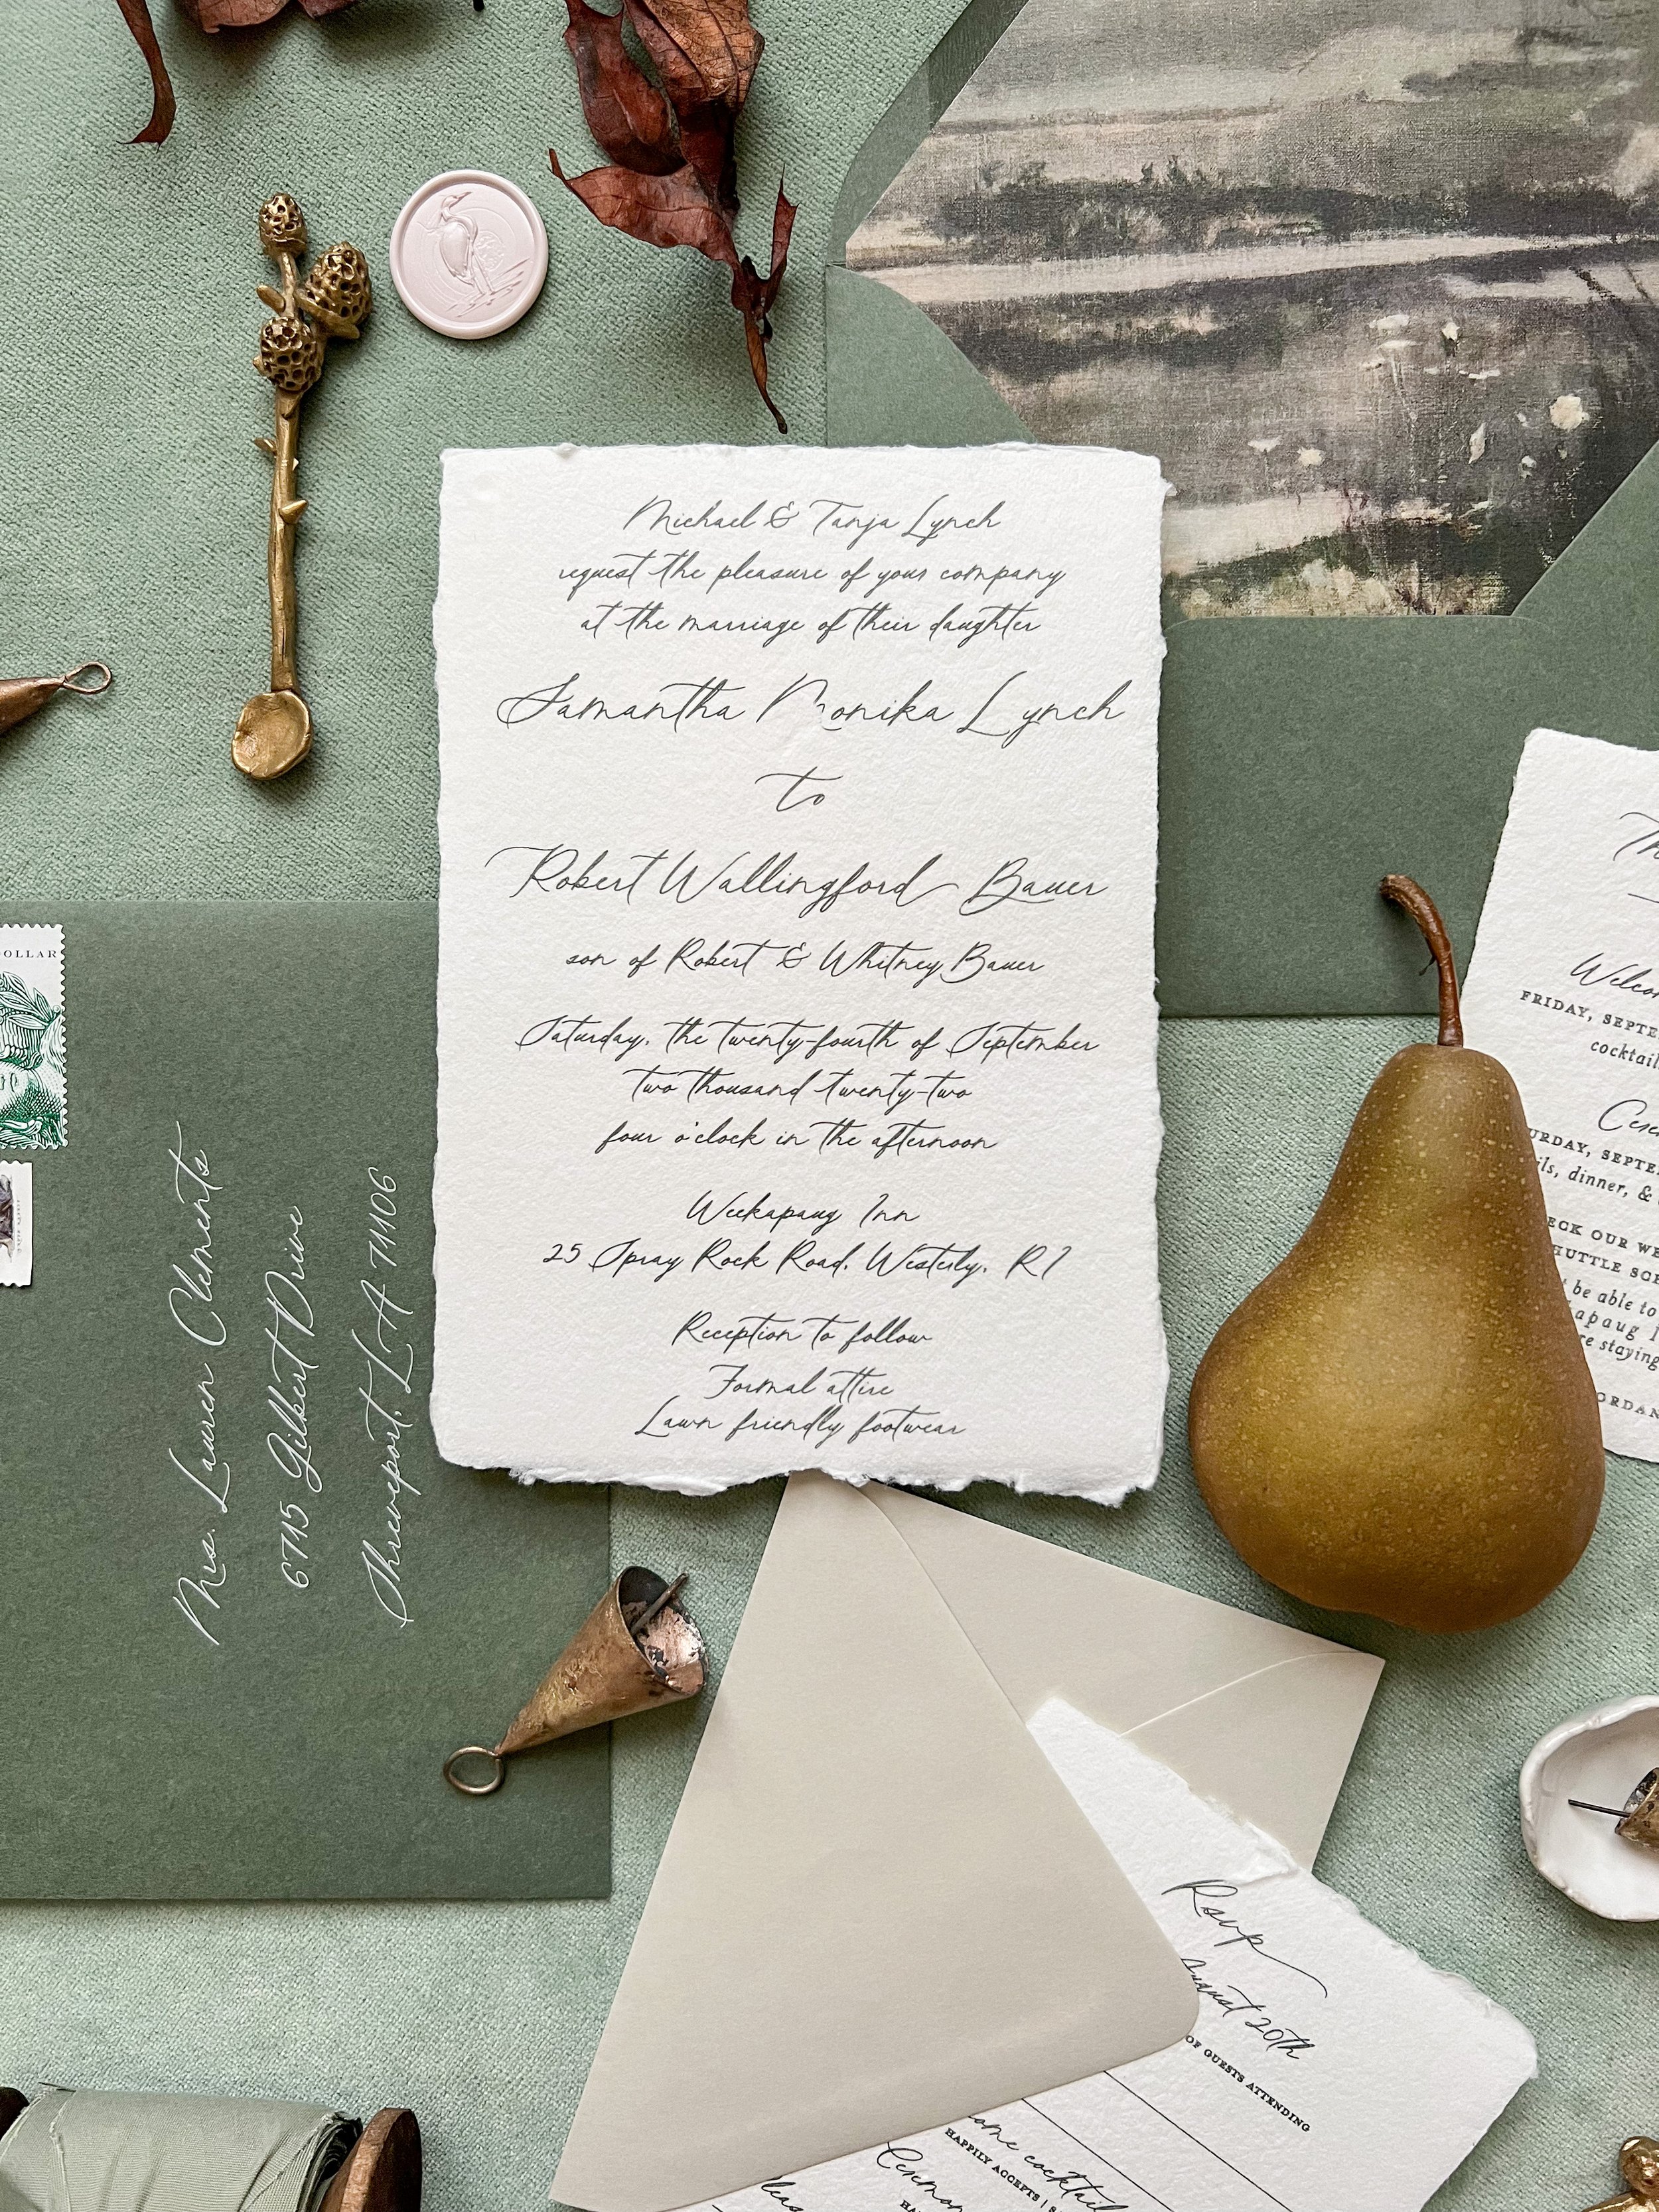 Michael & Tanja Lynch
request the pleasure of your company
at the marriage of their daughter
Samantha Monika Lynch
to
Robert Wallingford Bauer
son of Robert & Whitney Bauer
Saturday, the twenty-fourth of September
two thousand twenty-two
four o'clock in the afternoon
Weekapaug Inn
25 Spray Rock Road, Westerly, RI
Reception to follow
Formal attire
Lawn friendly footwear
OLLAR
Mrs. Lauren Clements
6715 Gilbert Drive
Shreveport, LA 71106
Th
Welco
FRIDAY, SEPTE
cocktail
Cere
URDAY, SEPTE
ils, dinner, &
ECK OUR WE
HUTTLE SC
be able to
apaug I
re staying
ORDAN
Rsvp
August 20th
OF GUESTS ATTENDING
ome cocktail
HAPPILY ACCEPTS |
Ceremon
HA